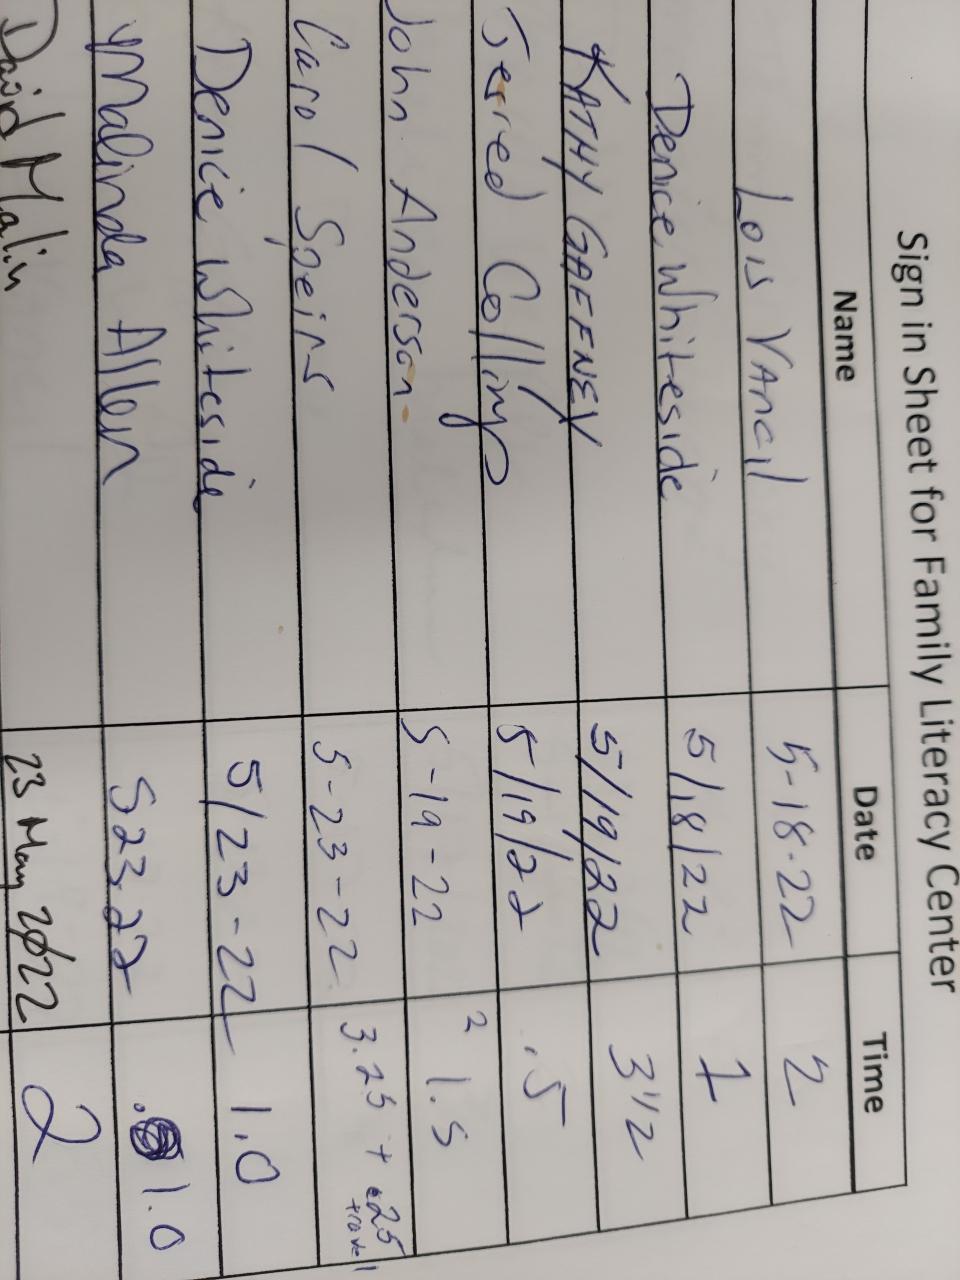 Sign in Sheet for Family Literacy Center
Name Date Time
Lois Vancil 5-18-22 2
Denice Whiteside 5/18/22 1
KATHY GAFFNEY 5/19/22 3 1/2
Jerred Collins 5/19/22 .5
John Anderson 5-19-22 2 1.5
Carol Speirs 5-23-22 3.25 + .25
travel
Denice Whiteside 5/23-22 1.0
Malinda Allen 5 23 22 1.0
David Malin 23 May 2022 2